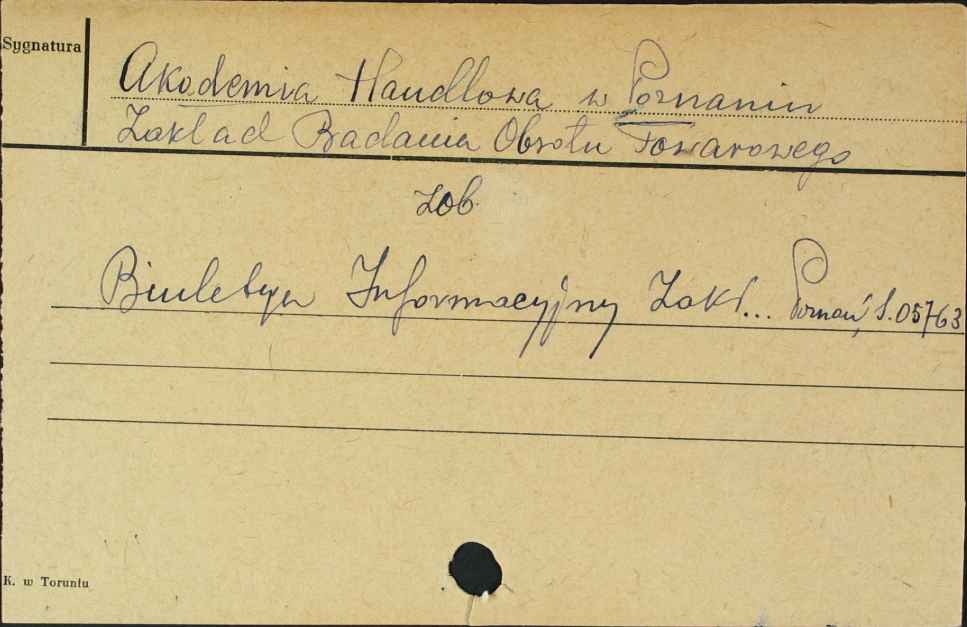 Sygnatura
Akademia Handlowa w Poznaniu
Zakład Badania Obrotu Towarowego
zob.
Biuletyn Informacyjny Zakł... Poznań, S.05763
K. w Toruniu